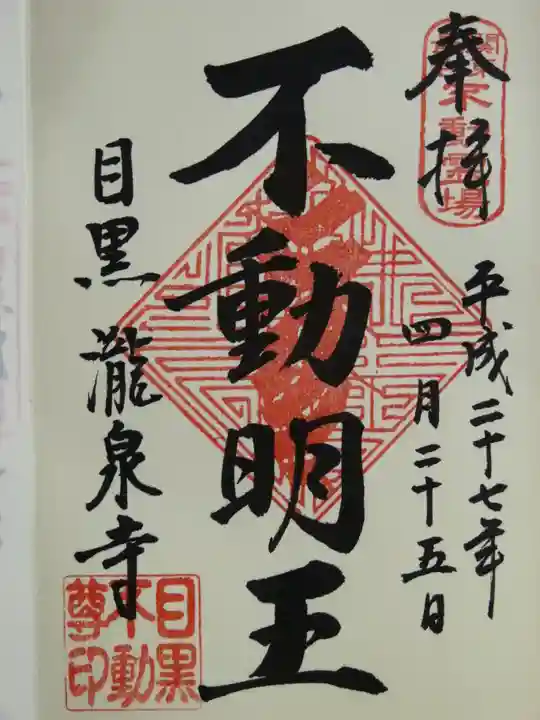 奉拝
不動霊場
平成二十七年
四月二十五日
不動明王
目黒 瀧泉寺
目黒
不動
尊印